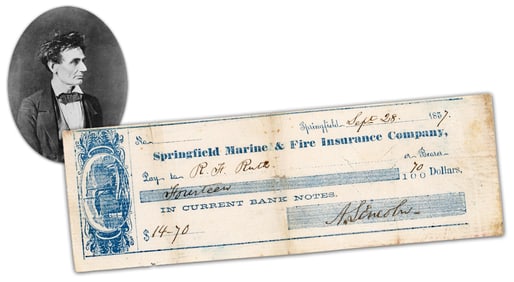 Springfield Sept 28. 1857.
No.
Springfield Marine & Fire Insurance Company,
Pay to R. F. Ruth or Bearer
Fourteen 70/100 Dollars,
IN CURRENT BANK NOTES.
$14-70 A. Lincoln